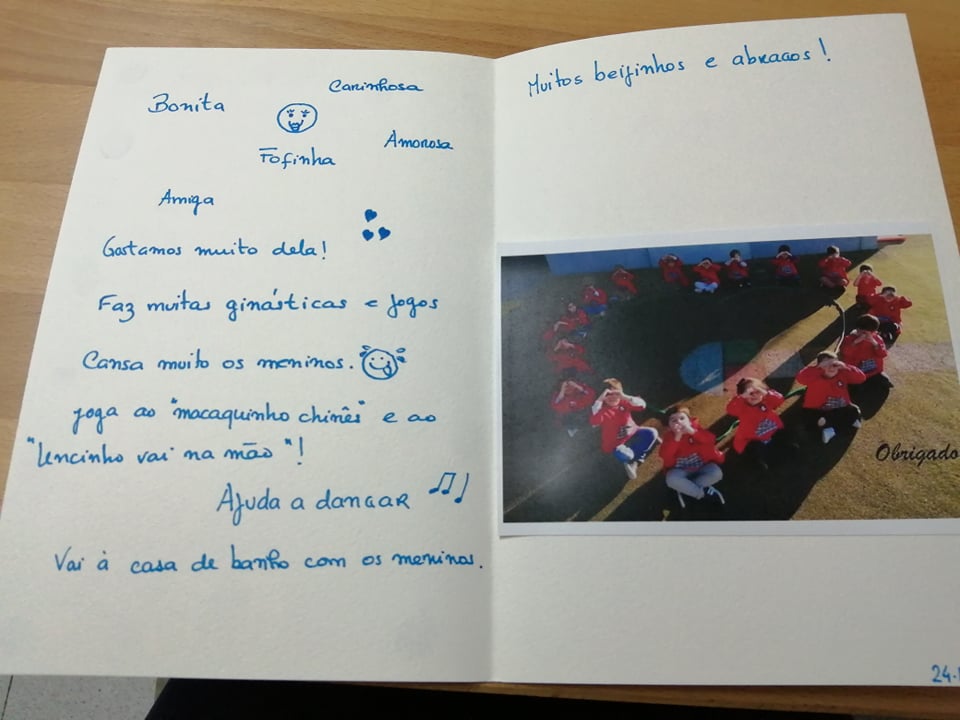 Bonita
Carinhosa
Fofinha
Amorosa
Amiga
Gostamos muito dela!
Faz muitas ginásticas e jogos
Cansa muito os meninos.
joga ao "macaquinho chinês" e ao
"lencinho vai na mão"!
Ajuda a dançar
Vai à casa de banho com os meninos.
Muitos beijinhos e abraços!
Obrigado